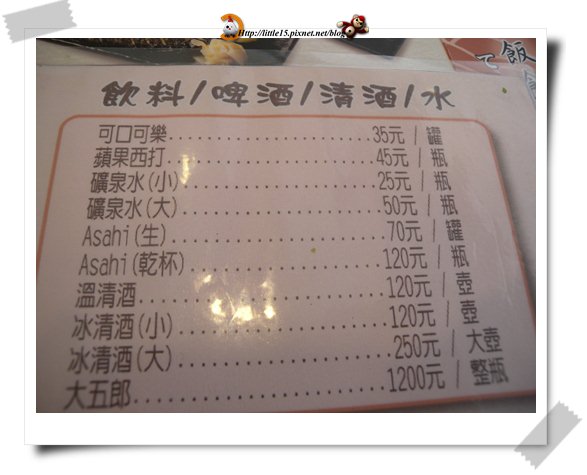 Http://little15.pixnet.net/blog
飯
て
飲料/啤酒/清酒/水
可口可樂......................35元 / 罐
蘋果西打......................45元 / 瓶
礦泉水(小)......................25元 / 瓶
礦泉水(大)......................50元 / 瓶
Asahi(生)......................70元 / 罐
Asahi(乾杯)......................120元 / 瓶
溫清酒......................120元 / 壺
冰清酒(小)......................120元 / 壺
冰清酒(大)......................250元 / 大壺
大五郎......................1200元 / 整瓶